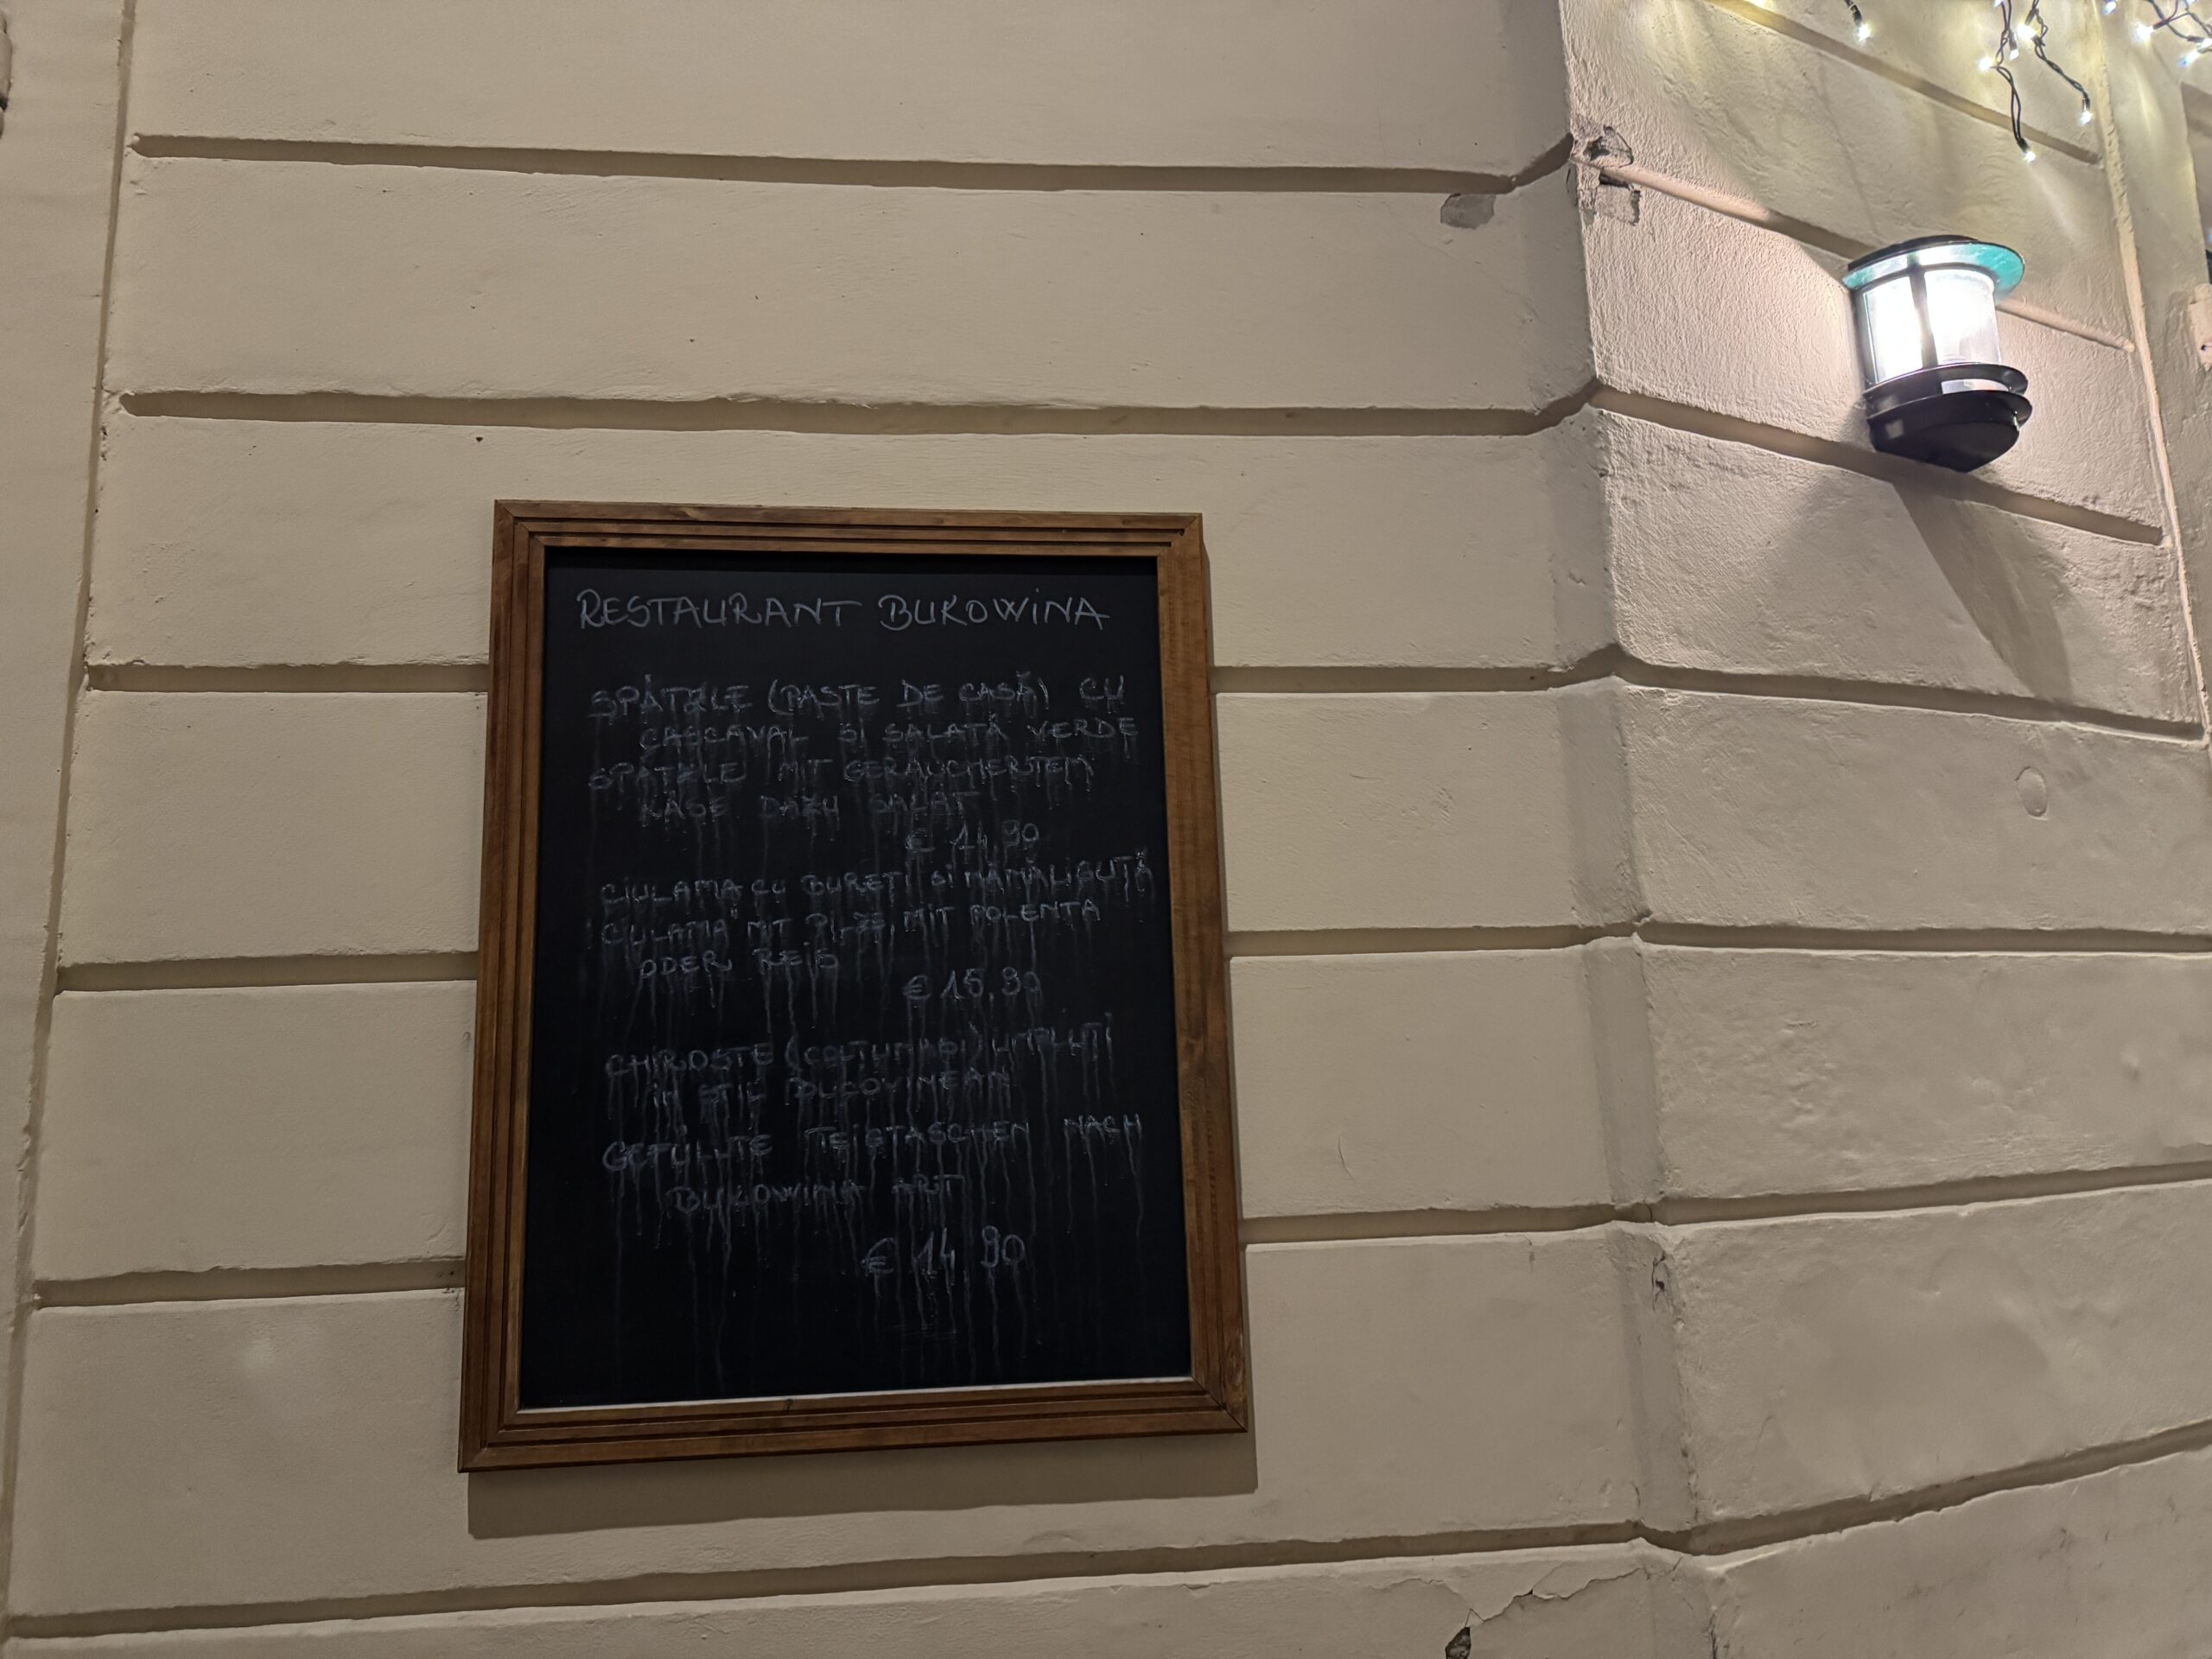 RESTAURANT BUKOWINA
SPÄTZLE (PASTE DE CASĂ) CU
CASCAVAL SI SALATĂ VERDE
SPÄTZLE MIT GERÄUCHERTEM
KÄSE DAZU SALAT
€ 14,90
CIULAMA CU BURETI SI MĂMĂLIGUTĂ
CIULAMA MIT PILZE MIT POLENTA
ODER REIS
€ 15,90
CHIROSTE (COLTUNASI) UMPLUTI
IN STIL BUCOVINEAN
GEFÜLLTE TEIGTASCHEN NACH
BUKOWINA ART
€ 14,90